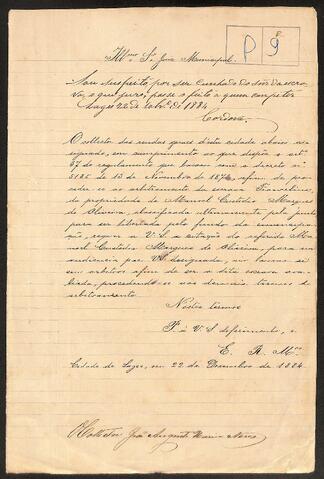 P 9
Illmo Sr Juiz Municipal
Sou suspeito por ser cunhado do dono da escra-
va, o que juro; passe o feito a quem competir
Lages 22 de 1884
Cordova
O collector das rendas geraes d'esta cidade abaixo as-
signado, em cumprimento ao que dispõe o art.
37 do regulamento que baixou com o decreto nº
5135 de 13 de Novembro de 1872, afim de pro-
ceder-se ao arbitramento da escrava
de propriedade de Manoel Custodio Marques
de Oliveira, classificada pela junta
para ser libertada pelo fundo da emancipa-
ção, requer a V. S. a citação do referido Ma-
noel Custodio Marques de Oliveira, para na
audiencia por V. S. designada, vir louvar-se
em arbitros afim de ser a dita escrava ava-
liada, procedendo-se aos demais termos de
arbitramento.
Nestes termos
P. a V. S. deferimento, e
E. R. Mce
Cidade de Lages, em 22 de Dezembro de 1884.
O Collector João Augusto Xavier Neves